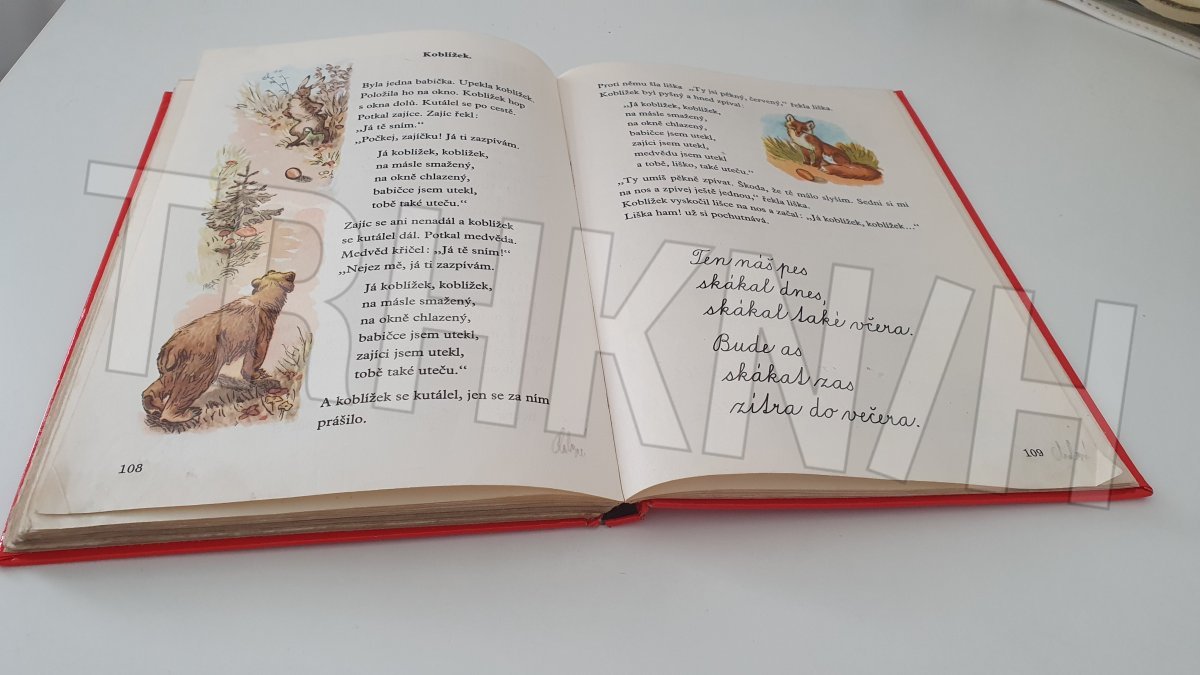 Koblížek.
Byla jedna babička. Upekla koblížek.
Položila ho na okno. Koblížek hop
s okna dolů. Kutálel se po cestě.
Potkal zajíce. Zajíc řekl:
„Já tě sním.“
„Počkej, zajíčku! Já ti zazpívám.
Já koblížek, koblížek,
na másle smažený,
na okně chlazený,
babičce jsem utekl,
tobě také uteču.“
Zajíc se ani nenadál a koblížek
se kutálel dál. Potkal medvěda.
Medvěd křičel: „Já tě sním!“
„Nejez mě, já ti zazpívám.
Já koblížek, koblížek,
na másle smažený,
na okně chlazený,
babičce jsem utekl,
zajíci jsem utekl,
tobě také uteču.“
A koblížek se kutálel, jen se za ním
prášilo.
108
Proti němu šla liška „Ty jsi pěkný, červený,“ řekla liška.
Koblížek byl pyšný a hned zpíval:
„Já koblížek, koblížek,
na másle smažený,
na okně chlazený,
babičce jsem utekl,
zajíci jsem utekl,
medvědu jsem utekl
a tobě, liško, také uteču.“
„Ty umíš pěkně zpívat. Škoda, že tě málo slyším. Sedni si mi
na nos a zpívej ještě jednou,“ řekla liška.
Koblížek vyskočil lišce na nos a začal: „Já koblížek, koblížek...“
Liška ham! už si pochutnává.
Ten náš pes
skákal dnes,
skákal také včera.
Bude as
skákat zas
zítra do večera.
109
TRHKNIH